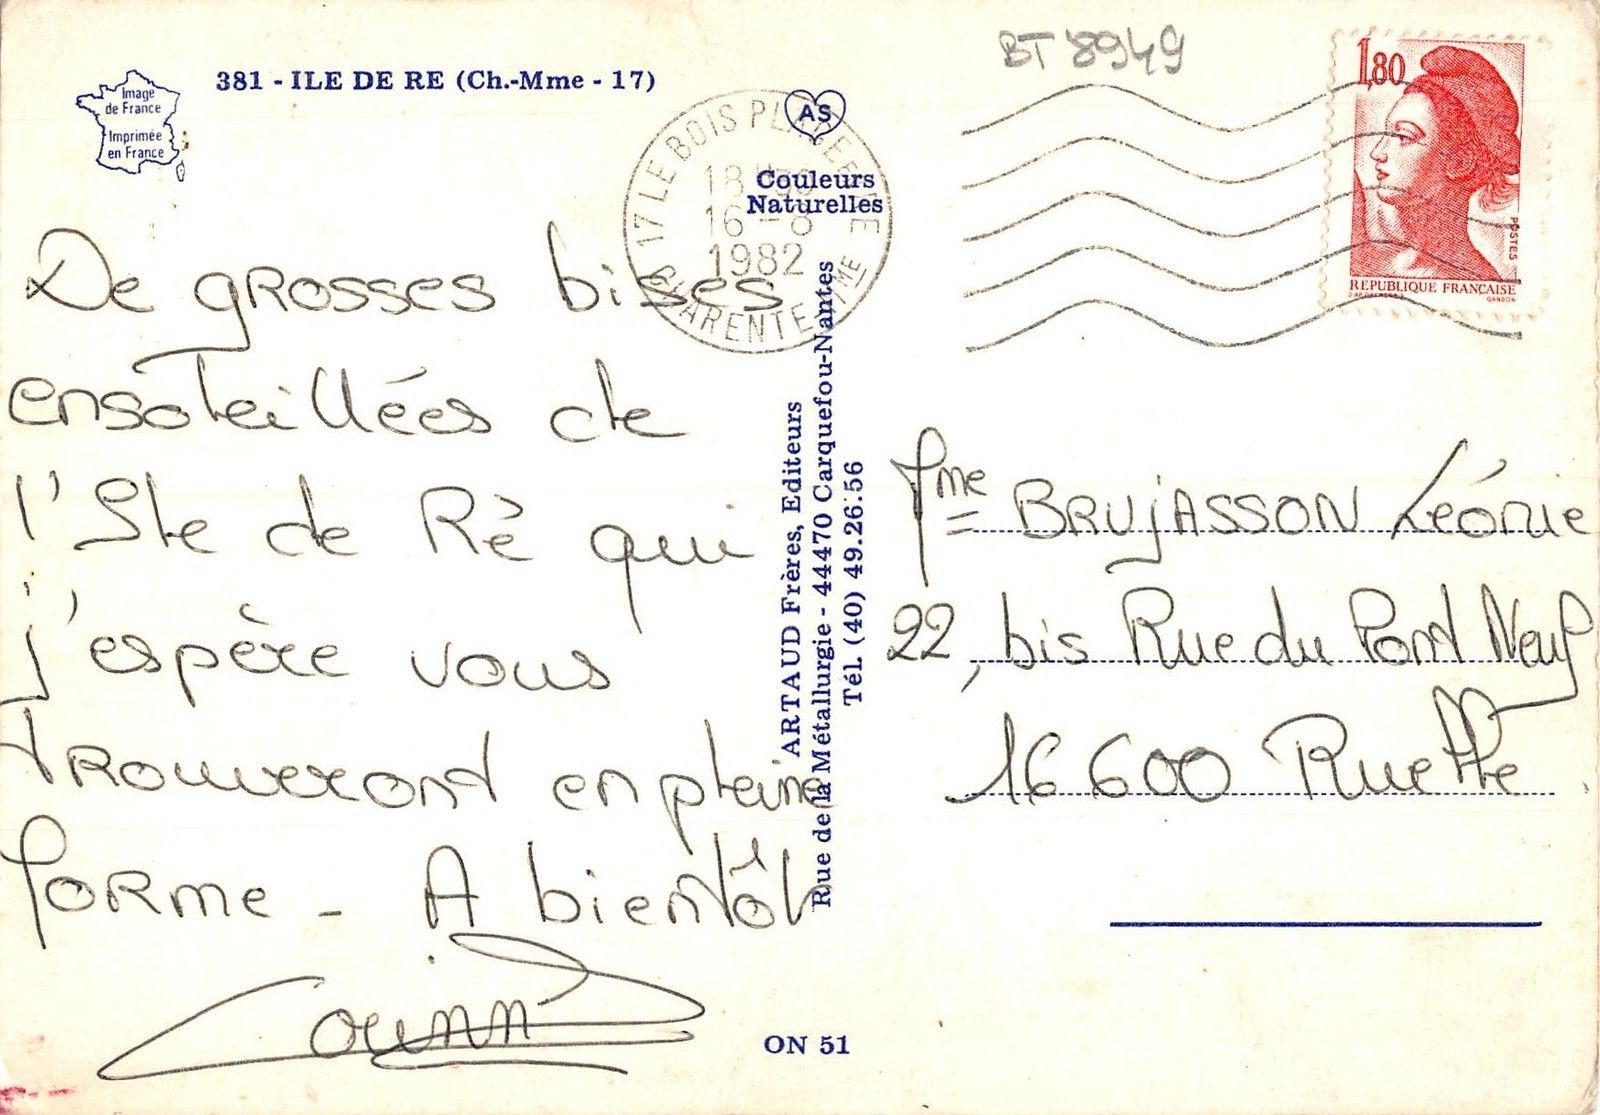 BT 8949
Image
de France
Imprimée
en France
381 - ILE DE RE (Ch.-Mme - 17)
AS
Couleurs
Naturelles
17 LE BOIS PLAGE EN RE
CHARENTE-MME
18H
16 - 8
1982
1,80
POSTES
REPUBLIQUE FRANÇAISE
GANDON
De grosses bises
ensoleillées de
l'Ile de Ré qui
j'espère vous
trouveront en pleine
forme - A bientôt
Corinne
ARTAUD Frères, Editeurs
Rue de la Métallurgie - 44470 Carquefou-Nantes
Tél. (40) 49.26.56
Mme BRUJASSON Léonie
22, bis Rue du Pont Neuf
16600 Ruelle
ON 51